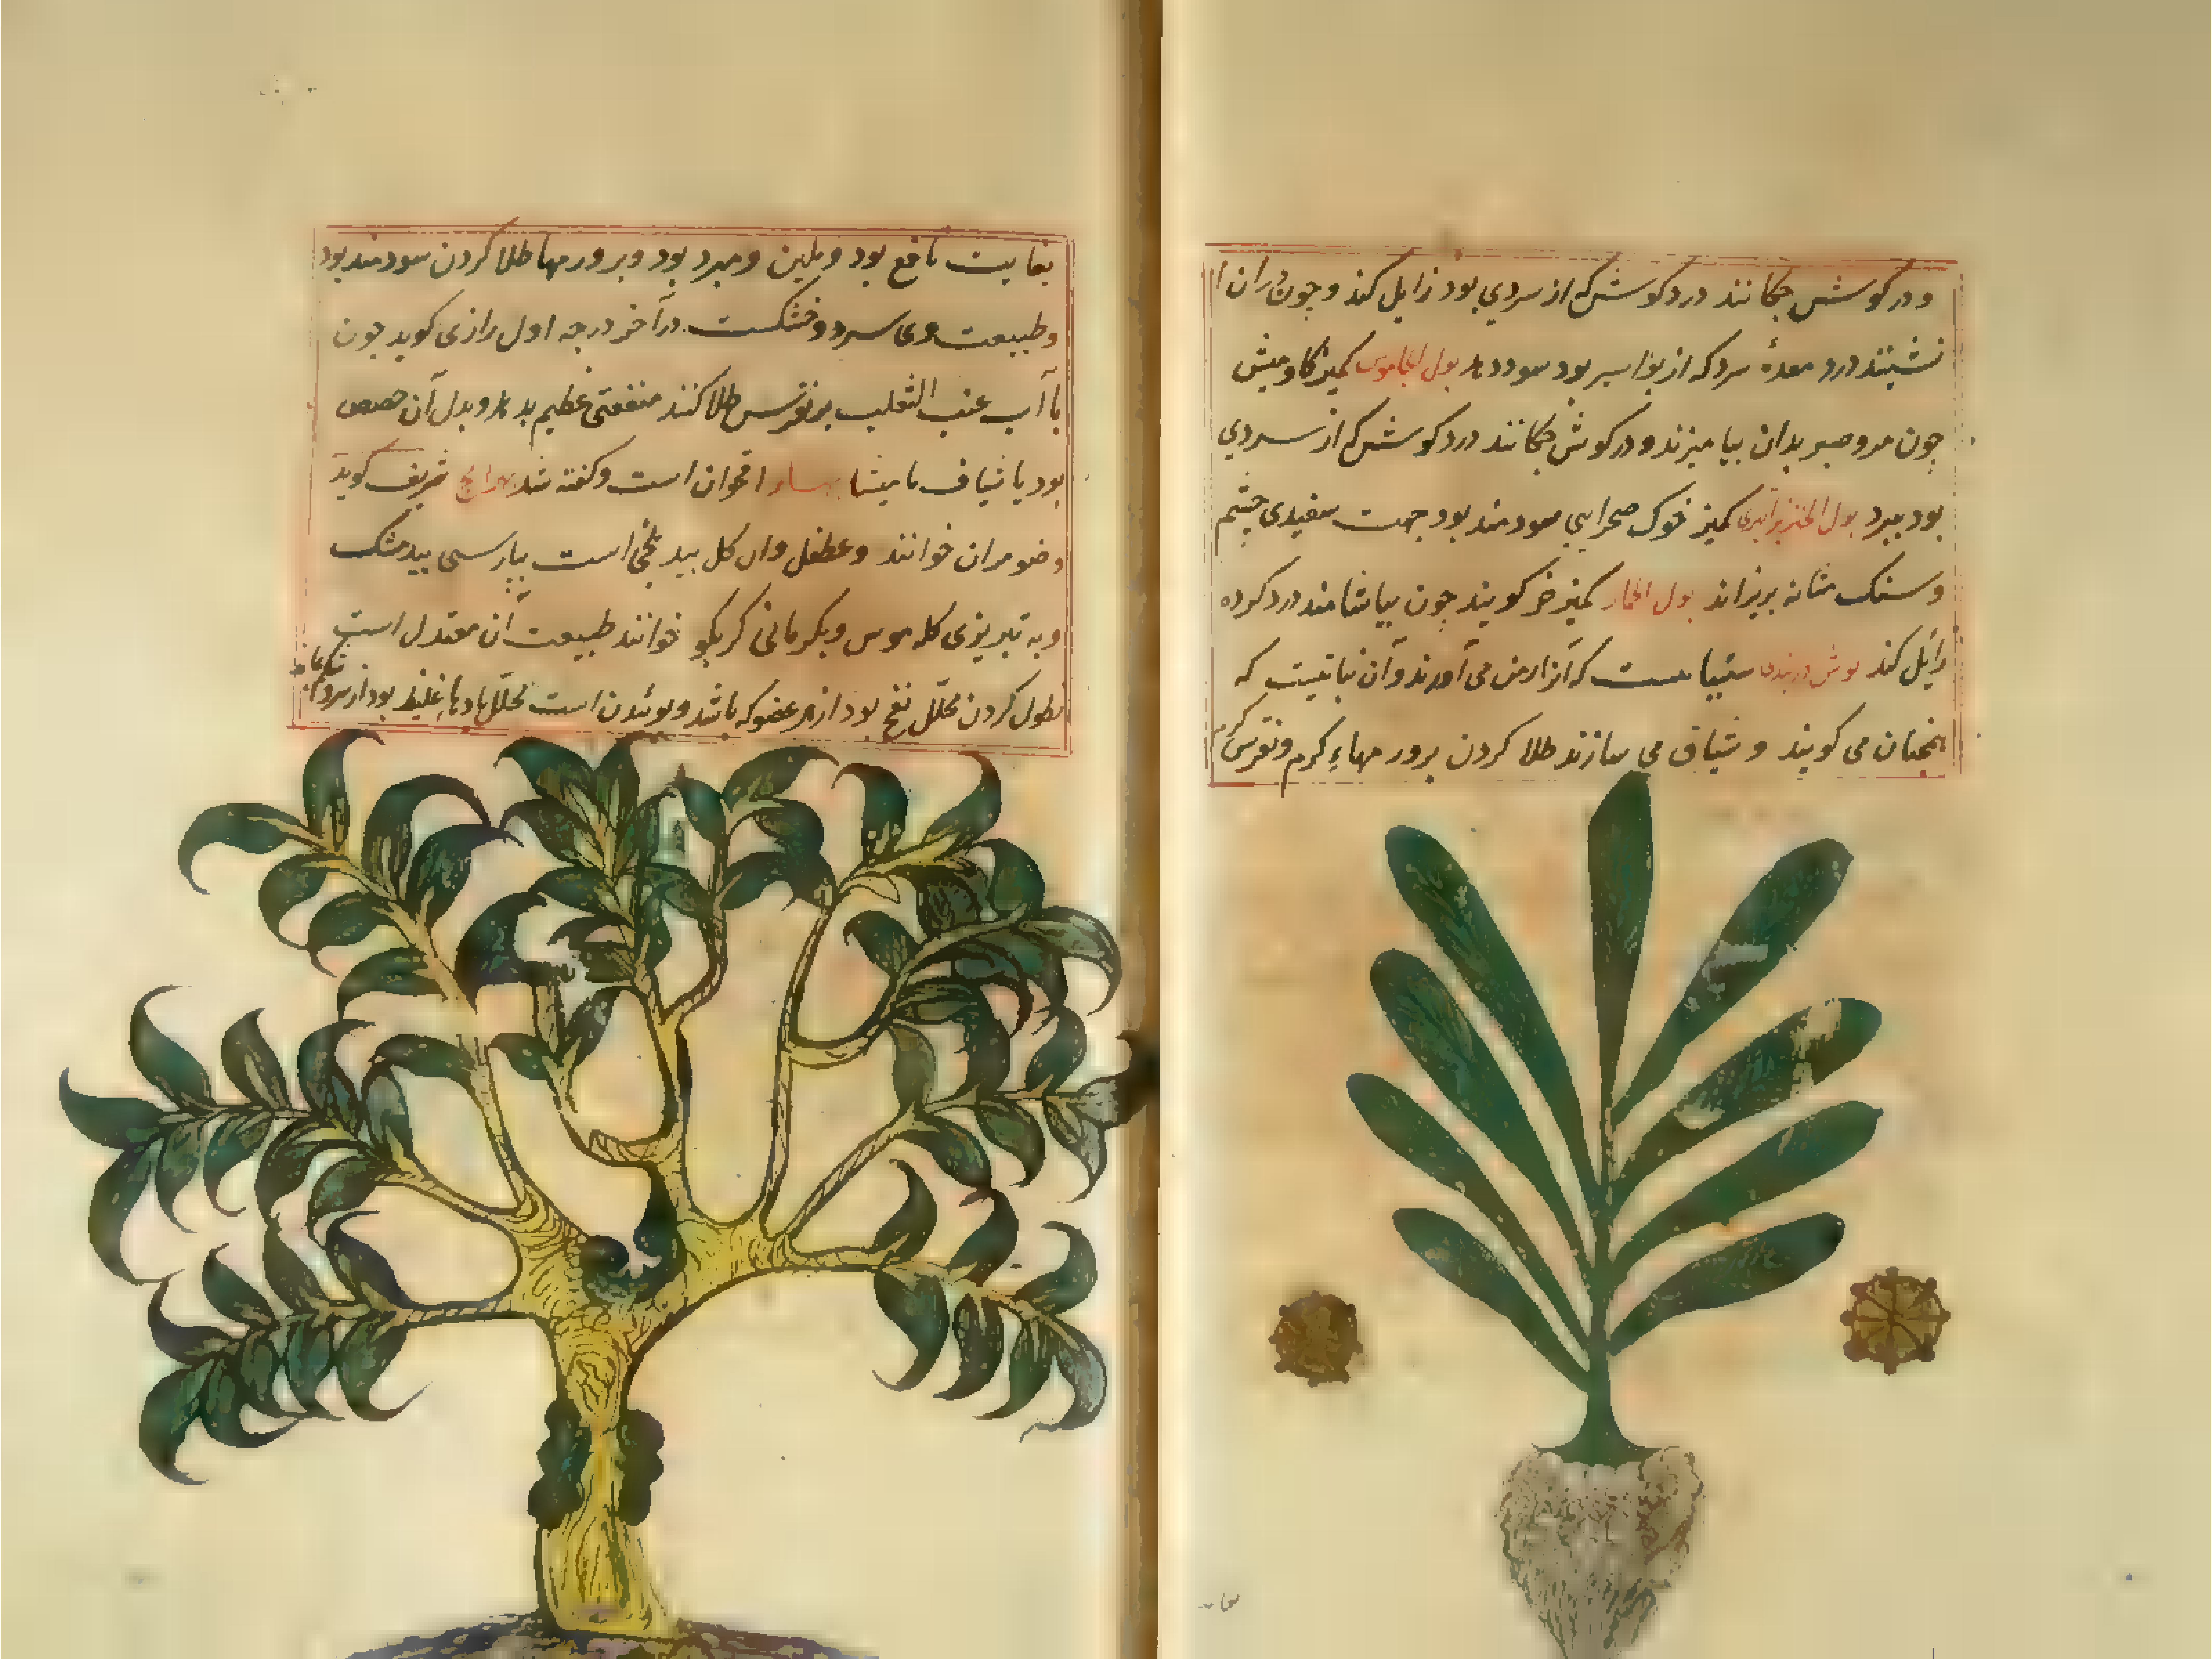 و در کوش چکانند درد کوش که از سردی بود زایل کند و چون در آن
نشینند درد معدهٔ سرد که از بواسیر بود سود دهد بول الجاموس کمیز کاومیش
چون مر و صبر بدان بیامیزند و در کوش چکانند درد کوش که از سردی
بود ببرد بول الخنزیر البری کمیز خوک صحرایی سودمند بود جهت سفیدی چشم
و سنک مثانه بریزاند بول الحمار کمیز خر کویند چون بیاشامند درد کرده
زایل کند بوش دربندی ست که آنرا از ارمن می آورند و آن نباتیست که
همچنان می کویند و شیاف می سازند طلا کردن بر ورمهاء کرم و نقرس کرم
بغایت نافع بود و ملین و مبرد بود و بر ورمها طلا کردن سودمند بود
و طبیعت وی سرد و خشکست در آخر درجه اول رازی کوید چون
با آب عنب الثعلب بر نقرس طلا کنند منفعتی عظیم بدهد و بدل آن حضض
بود یا شیاف مامیثا بهار اقحوان است و کفته شد بهرامج شریف کوید
و ضومران خوانند و عطفل و آن کل بید بلخی است بپارسی بیدمشک
و به تبریزی کله موس و بکرمانی کربکو خوانند طبیعت آن معتدل است
نطول کردن محلل نفخ بود از هر عضو که باشد و بوئیدن است محلل بادهاء غلیظ بود از سر
بغایت